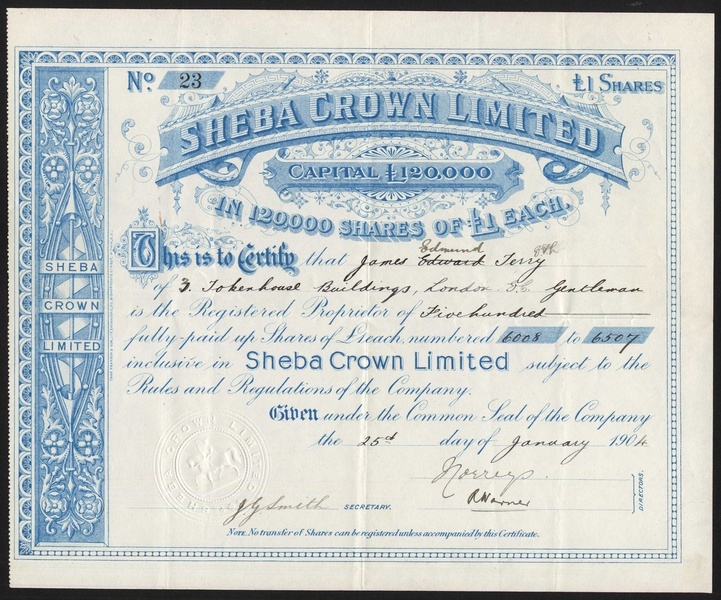 No. 23
£1 SHARES
SHEBA CROWN LIMITED
CAPITAL £120.000
IN 120000 SHARES OF £1 EACH.
Edmund
This is to Certify that James Edward Terry
of 3. Tokenhouse Buildings, London E.C. Gentleman
is the Registered Proprietor of Five hundred
fully-paid up Shares of £1 each, numbered 6008 to 6507
inclusive in Sheba Crown Limited subject to the
Rules and Regulations of the Company.
Given under the Common Seal of the Company
the 25th day of January 1904
Norreys.
R Warner
DIRECTORS.
J G Smith SECRETARY.
NOTE. No transfer of Shares can be registered unless accompanied by this Certificate.
SHEBA
CROWN
LIMITED